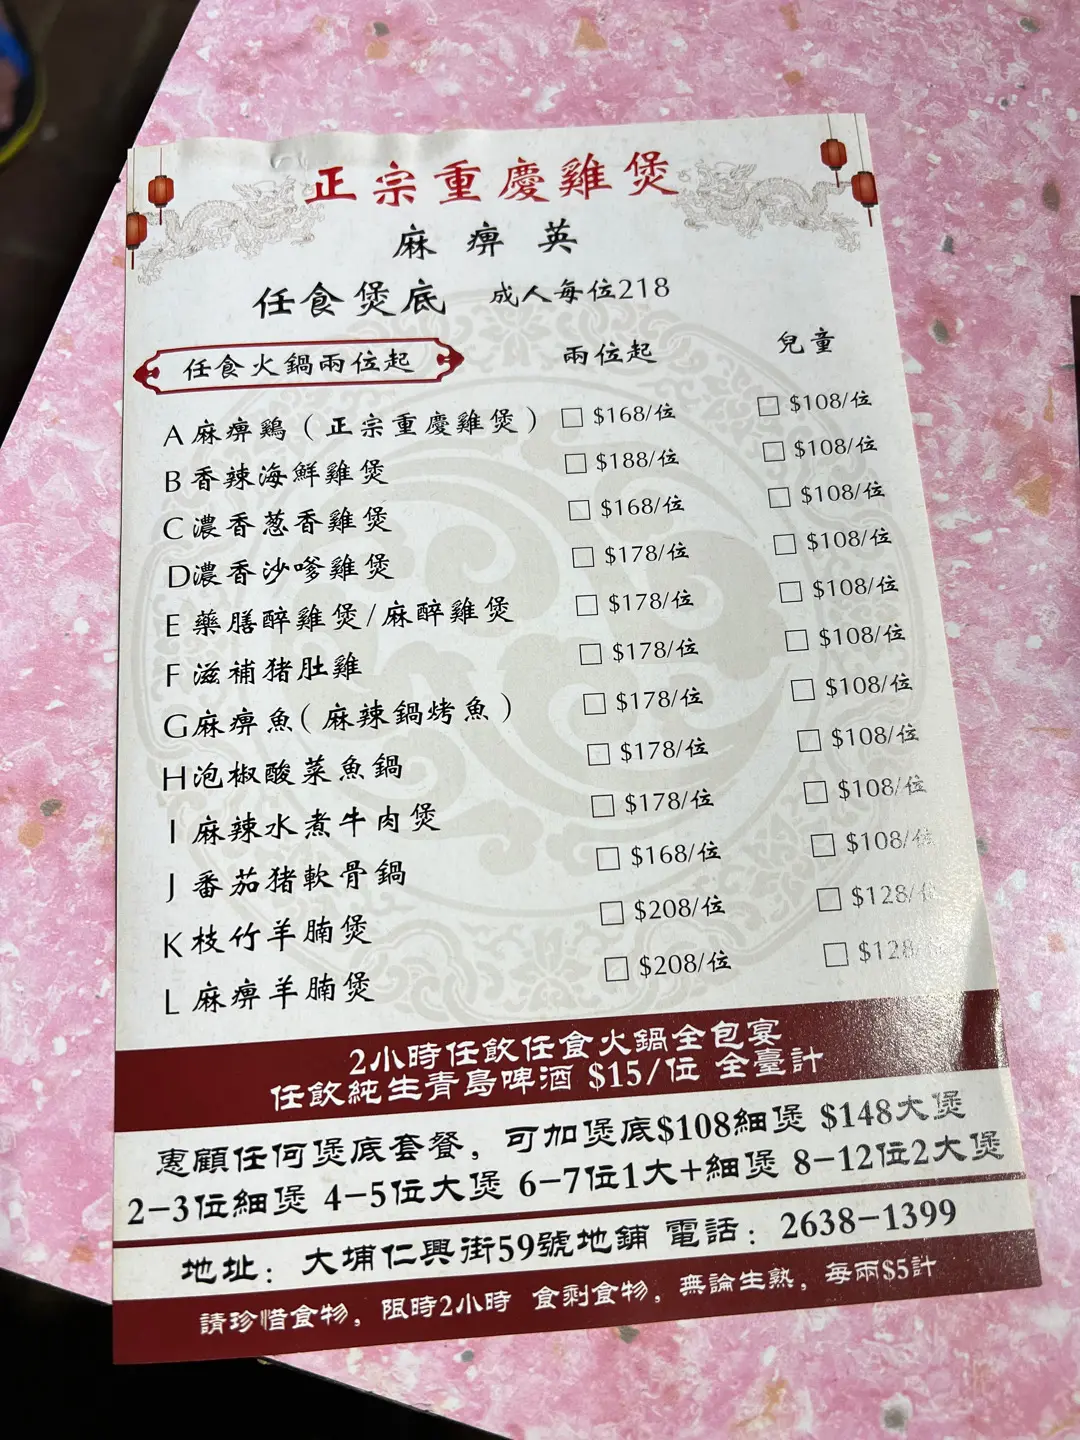 正宗重慶雞煲
麻痹英
任食煲底 成人每位218
任食火鍋兩位起 兩位起 兒童
A 麻痹鷄（正宗重慶雞煲） □ $168/位 □ $108/位
B 香辣海鮮雞煲 □ $188/位 □ $108/位
C 濃香葱香雞煲 □ $168/位 □ $108/位
D 濃香沙嗲雞煲 □ $178/位 □ $108/位
E 藥膳醉雞煲/麻醉雞煲 □ $178/位 □ $108/位
F 滋補猪肚雞 □ $178/位 □ $108/位
G 麻痹魚（麻辣鍋烤魚） □ $178/位 □ $108/位
H 泡椒酸菜魚鍋 □ $178/位 □ $108/位
I 麻辣水煮牛肉煲 □ $178/位 □ $108/位
J 番茄猪軟骨鍋 □ $168/位 □ $108/位
K 枝竹羊腩煲 □ $208/位 □ $128/位
L 麻痹羊腩煲 □ $208/位 □ $128/位
2小時任飲任食火鍋全包宴
任飲純生青島啤酒 $15/位 全臺計
惠顧任何煲底套餐，可加煲底$108細煲 $148大煲
2-3位細煲 4-5位大煲 6-7位1大+細煲 8-12位2大煲
地址：大埔仁興街59號地鋪 電話：2638-1399
請珍惜食物，限時2小時 食剩食物，無論生熟，每兩$5計